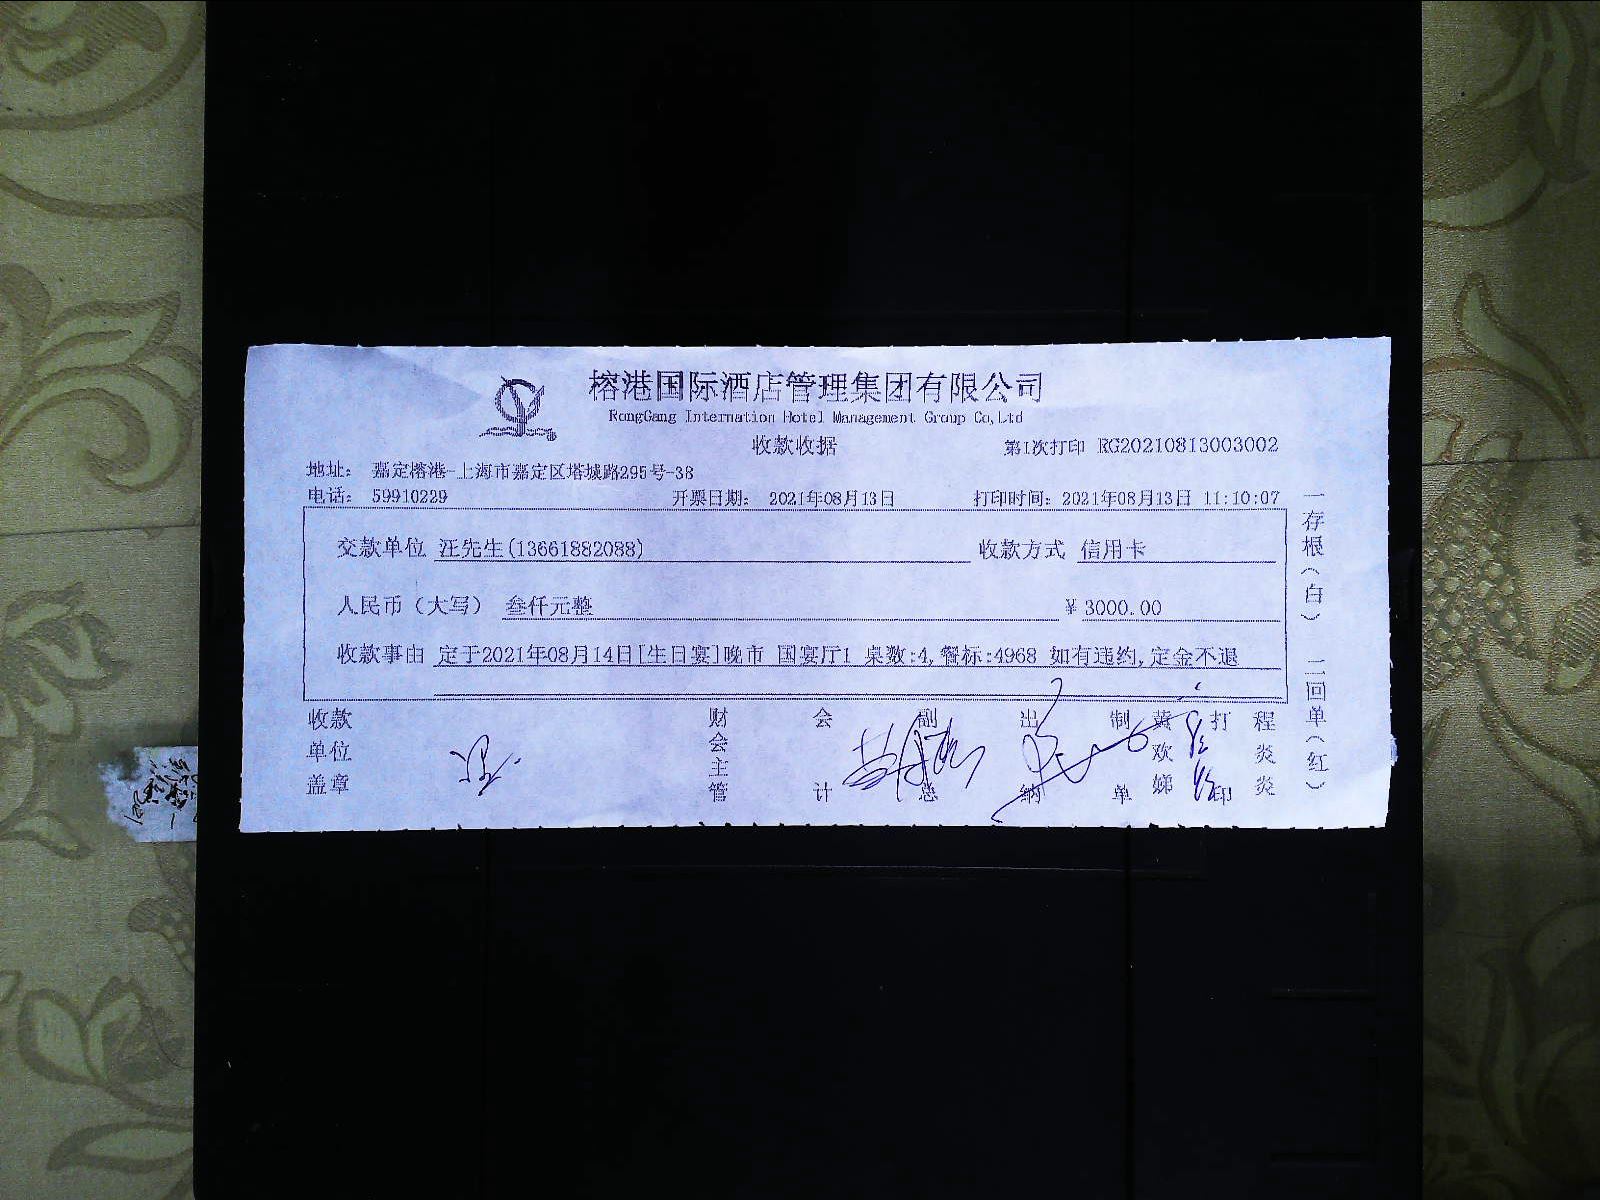 榕港国际酒店管理集团有限公司
RongGang Internation Hotel Management Group Co,Ltd
收款收据
第1次打印 RG20210813003002
地址： 嘉定榕港-上海市嘉定区塔城路295号-38
电话： 59910229 开票日期： 2021年08月13日 打印时间：2021年08月13日 11:10:07
交款单位 汪先生(13661882088) 收款方式 信用卡
人民币（大写） 叁仟元整 ¥ 3000.00
收款事由 定于2021年08月14日[生日宴]晚市 国宴厅1 桌数:4,餐标:4968 如有违约,定金不退
收款单位盖章 财会主管 会计 副总 出纳 制单 黄欢娣 打印 程炎炎
一存根（白） 二回单（红）